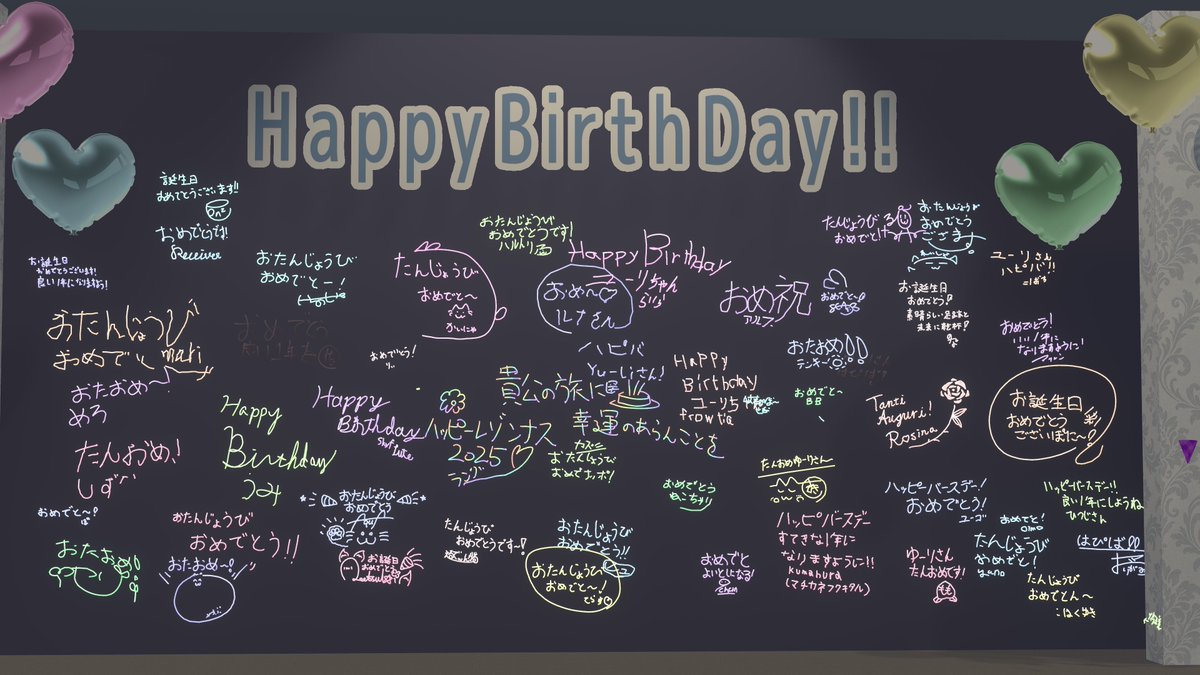 HappyBirthDay!!
誕生日
おめでとうございます!!
おめでとうです!
Receive
お誕生日
おめでとうございます!
良い1年になりますよう!
おたんじょうび
おめでとー!
たんじょうび
おめでと~
おたんじょうび
おめでとうです!
ハルトリ
Happy Birthday
ユーリちゃん
おめ~♡
ルナさん
おめ祝
おめでと~!
たんじょうび
おめでと!
おたんじょうび
おめでとう
ござま
ユーリさん
ハピバ!!
お誕生日
おめでとう!
素晴らしい足跡と
未来に乾杯!
おめでとう!
いい1年に
なりますように!
おたんじょうび
おめでとし
mari
おめでとう!
ハピバ
Yu-Liさん!
Happy
Birthday
ユーリち
frowtia
おたおめ!!
テンキー
おめでと~
BB
Tanti
Auguri!
Rosina
お誕生日
おめでとう
ございぽに~!
おたおめ~
めろ
Happy
Birthday
つみ
Happy
Birthday
貴公の旅に
幸運のあらんことを
ハッピーレゾンナス
2025♡
おたんじょうび
おめでナッポ!
たんおめ!
しず
おめでとう
ねこちゅ!
たんおめゆーりさん
ハッピーバースデー!
おめでとう!
ユーゴ
ハッピーバースデー!!
良い1年にしようね
ひつじさん
おめでと~!
おたんじょうび
おめでとう!!
おたんじょうび
おめでとう
たんじょうび
おめでとうです~!
おたんじょうび
おめでとう!!
ハッピバースデー
すてきな1年に
なりますようにー!!
kumahura
(マチカネフクキタル)
おめでと!
omo
たんじょうび
おめでと!
はぴば!!
おたおめ!!
おたおめ~!
お誕生日
おめでとう
おたんじょうび
おめでと~!
おめでと
よいとしになる!
ゆーりさん
たんおめです!
たんじょうび
おめでとん~